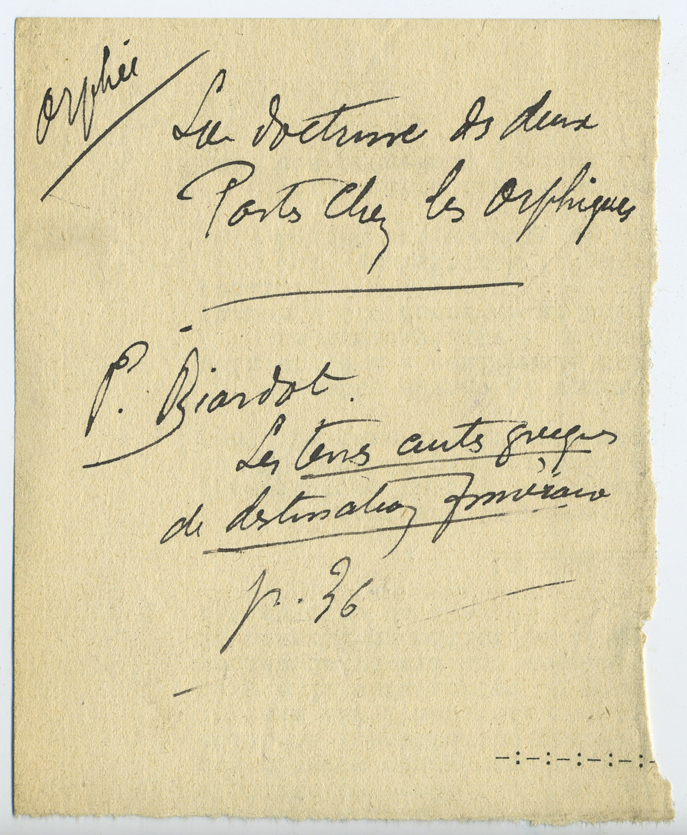 Orphée
La doctrine des deux
Portes chez les Orphiques
P. Biardot.
Les terres cuites grecques
de destination funéraire
p. 36
-:-:-:-:-:-